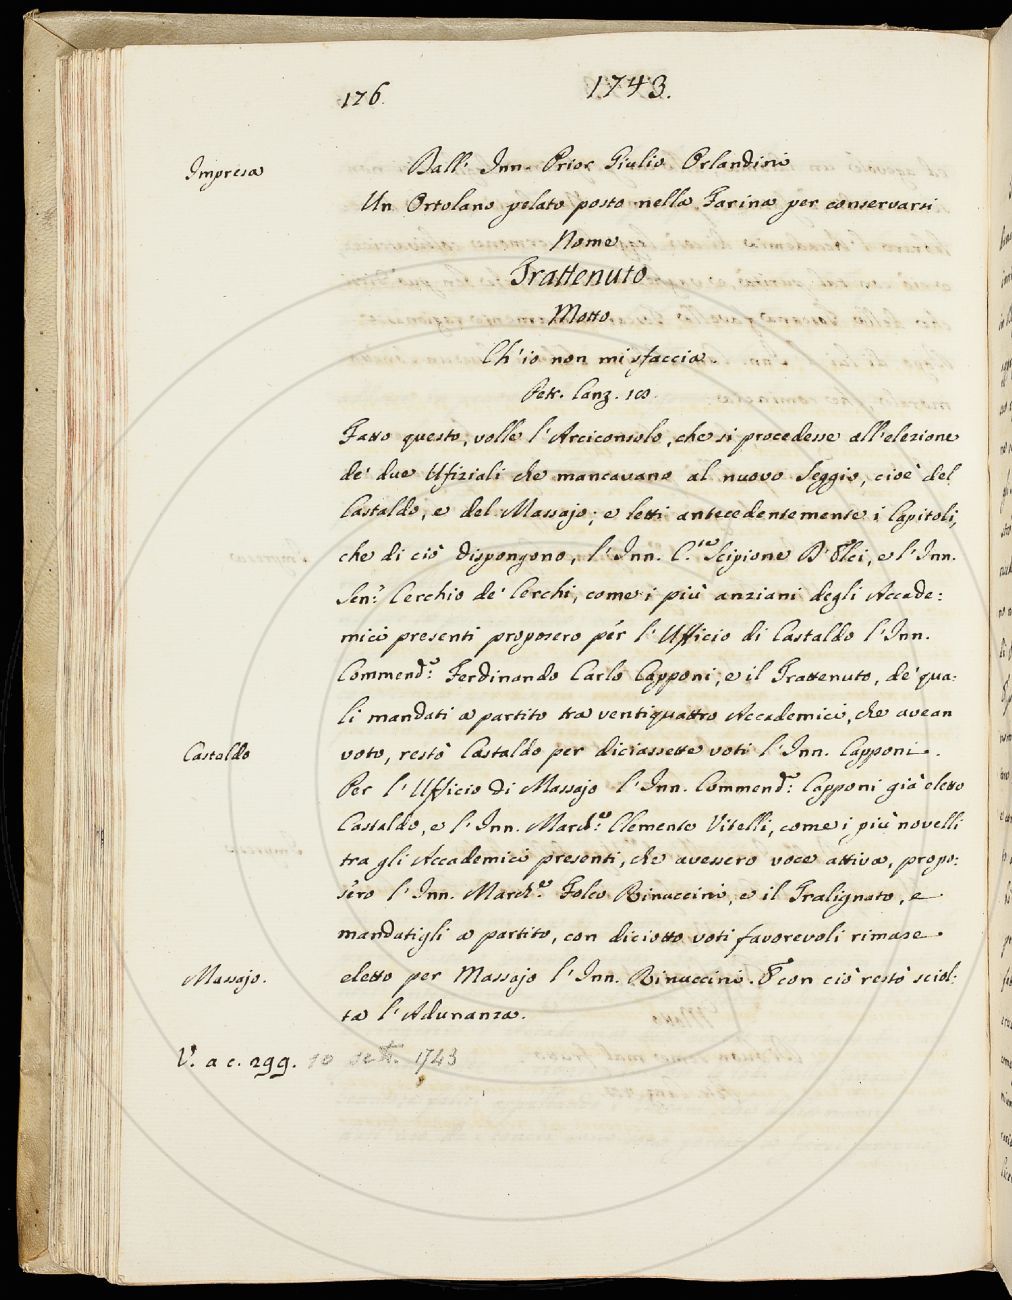 176.
1743.
Impresa
Ball: Inn. Prior Giulio Orlandini
Un Ortolano pelato posto nella Farina per conservarsi
Nome
Trattenuto
Motto
Ch'io non mi sfaccia.
Petr. Canz. 10.
Fatto questo, volle l'Arciconsolo, che si procedesse all'elezione
de' due Ufiziali che mancavano al nuovo Seggio, cioè del
Castaldo, e del Massajo; e letti antecedentemente i Capitoli,
che di ciò dispongono, l'Inn. C.te Scipione D'Elci, e l'Inn.
Sen: Cerchio de' Cerchi, come i più anziani degli Accade:
mici presenti proposero per l'Ufficio di Castaldo l'Inn.
Commend: Ferdinando Carlo Capponi, e il Trattenuto, de' qua:
li mandati a partito tra ventiquattro Accademici, che avean
Castaldo
voto, restò Castaldo per diciassette voti l'Inn. Capponi.
Per l'Ufficio di Massajo l'Inn. Commend: Capponi già eletto
Castaldo, e l'Inn. March:e Clemente Vitelli, come i più novelli
tra gli Accademici presenti, che avessero voce attiva, propo:
sero l'Inn. March.e Folco Rinuccini, e il Tralignato, e
mandatigli a partito, con diciotto voti favorevoli rimase
Massajo.
eletto per Massajo l'Inn. Rinuccini. E con ciò restò sciol:
ta l'Adunanza.
V. a c. 299. 10 sett. 1743